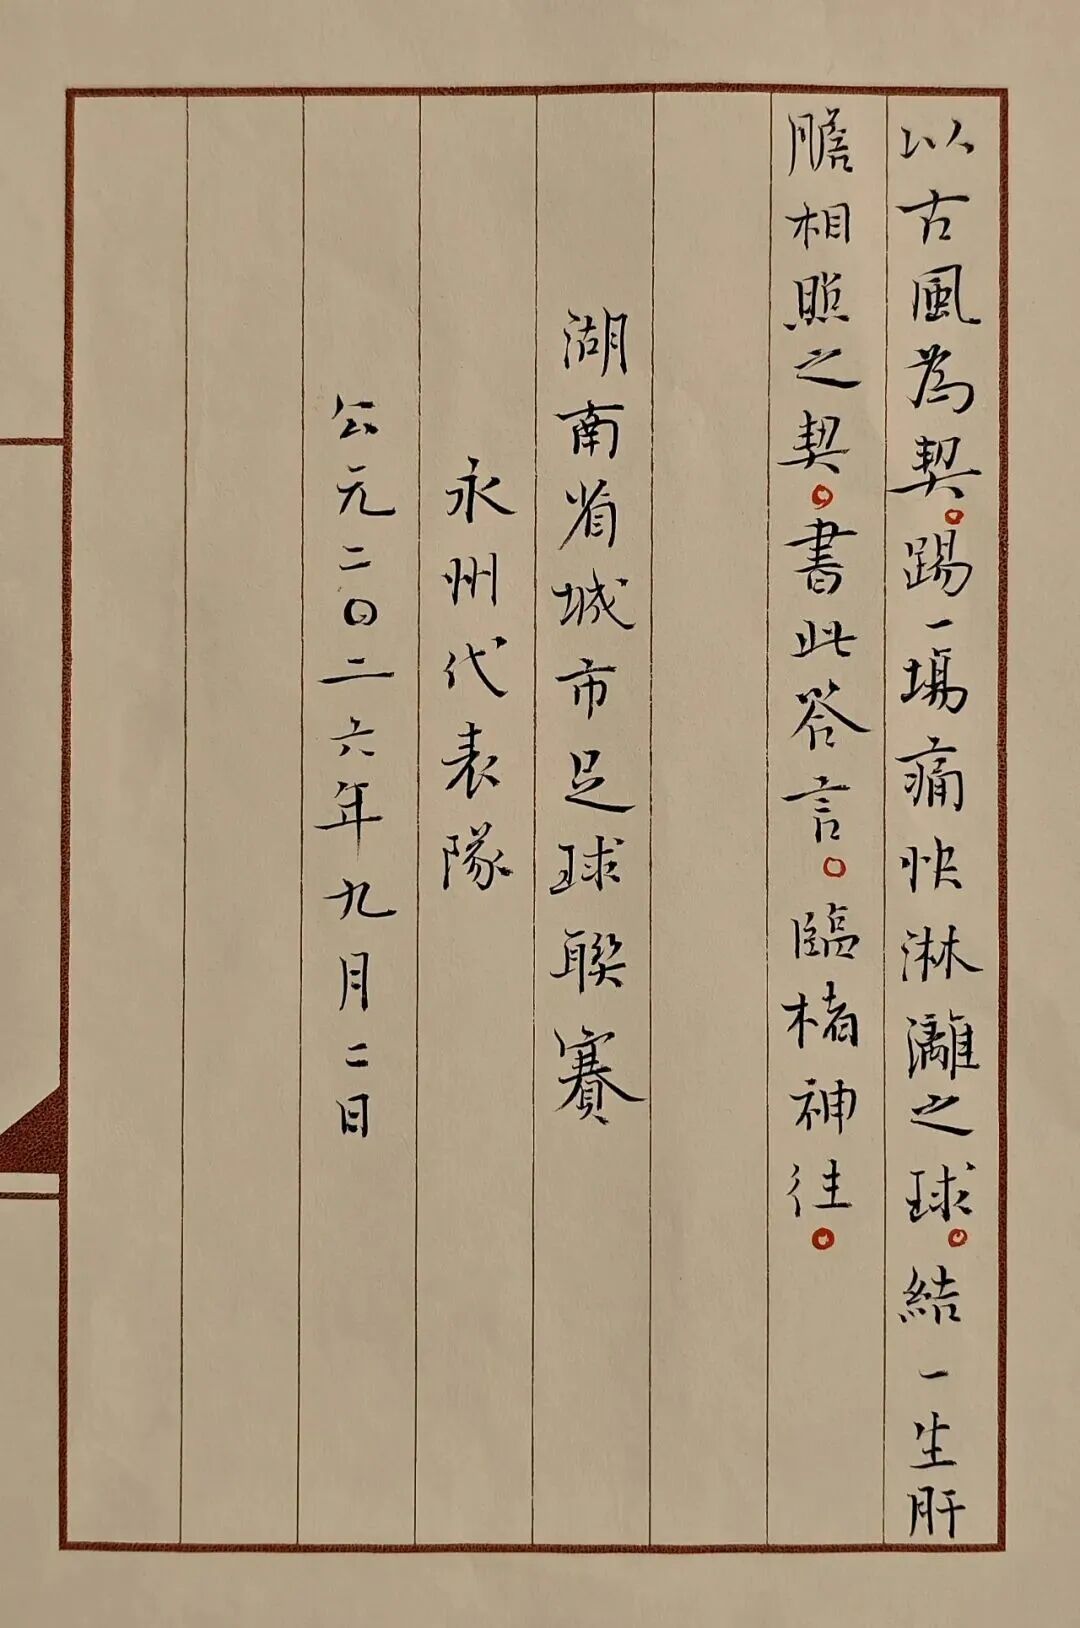 以古風為契。踢一場痛快淋灕之球。結一生肝
膽相照之契。書此答言。臨楮神往。
湖南省城市足球聯賽
永州代表隊
公元二〇二六年九月二日